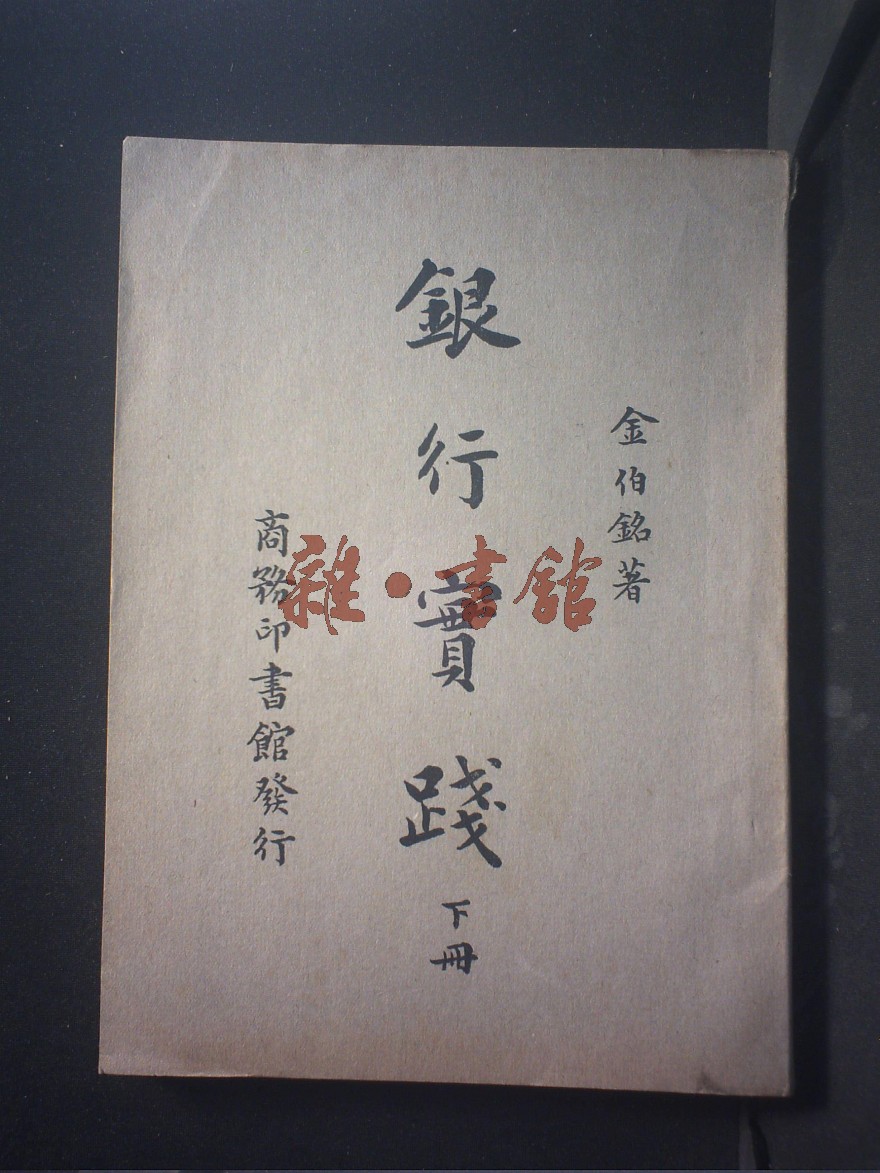 金伯銘著
銀行實踐 下冊
商務印書館發行
雜·書館